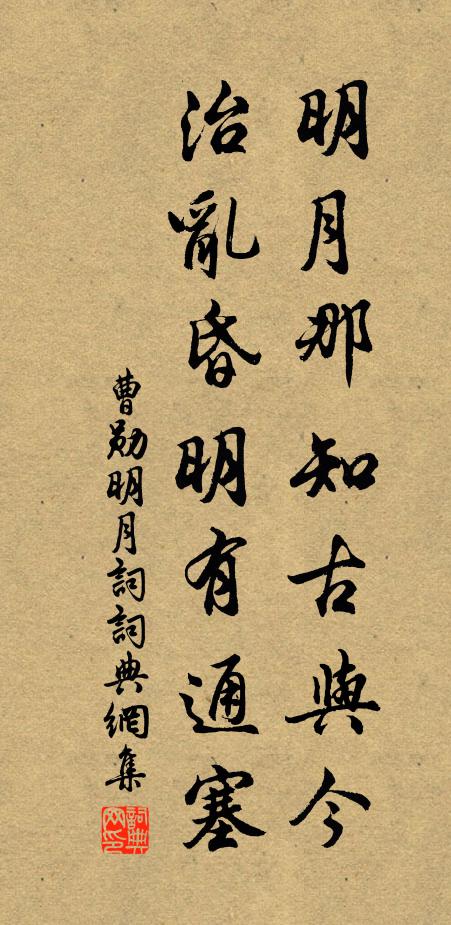 明月那知古與今
治亂昏明有通塞
曹勛明月詞詞典網集
詞典网印